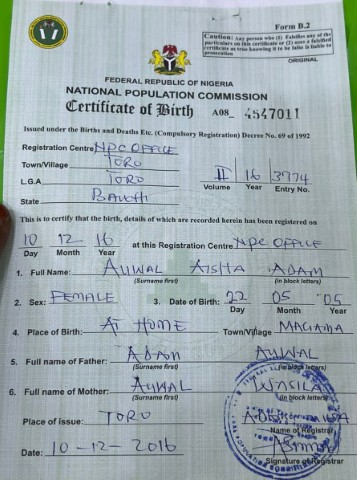 Form B.2
Caution: Any person who (1) Falsifies any of the
particulars on this certificate or (2) uses a falsified
certificate as true knowing it to be false is liable to
prosecution
ORIGINAL
FEDERAL REPUBLIC OF NIGERIA
NATIONAL POPULATION COMMISSION
Certificate of Birth A08_ 4547011
Issued under the Births and Deaths Etc. (Compulsory Registration) Decree No. 69 of 1992
Registration Centre NPC OFFICE
Town/Village TORO
L.G.A TORO
State BAUCHI
II 16 3774
Volume Year Entry No.
This is to certify that the birth, details of which are recorded herein has been registered on
10 12 16 at this Registration Centre NPC OFFICE
Day Month Year
1. Full Name: AUWAL AISHA ADAM
(Surname first) (in block letters)
2. Sex: FEMALE 3. Date of Birth: 22 05 05
Day Month Year
4. Place of Birth: AT HOME Town/Village MAGAMA
5. Full name of Father: ADAM AUWAL
(Surname first) (in block letters)
6. Full name of Mother: AUWAL WASILA
(Surname first) (in block letters)
Place of issue: TORO
Name of Registrar
Date: 10-12-2016
Signature of Registrar